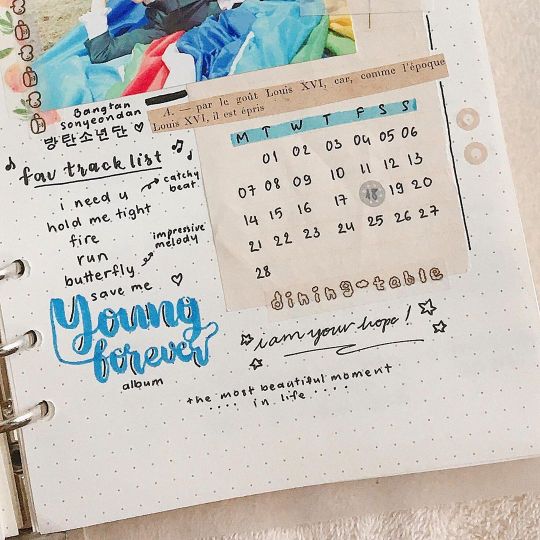 Bangtan
sonyeondan
방탄소년단
A. — par le goût Louis XVI, car, comme l'époque
Louis XVI, il est épris
fav track list
i need u
catchy
beat
hold me tight
fire
run
impressive
melody
butterfly
save me
Young
forever
album
M T W T F S S
01 02 03 04 05 06
07 08 09 10 11 12 13
14 15 16 17 18 19 20
21 22 23 24 25 26 27
28
dining-table
i am your hope!
the most beautiful moment
in life